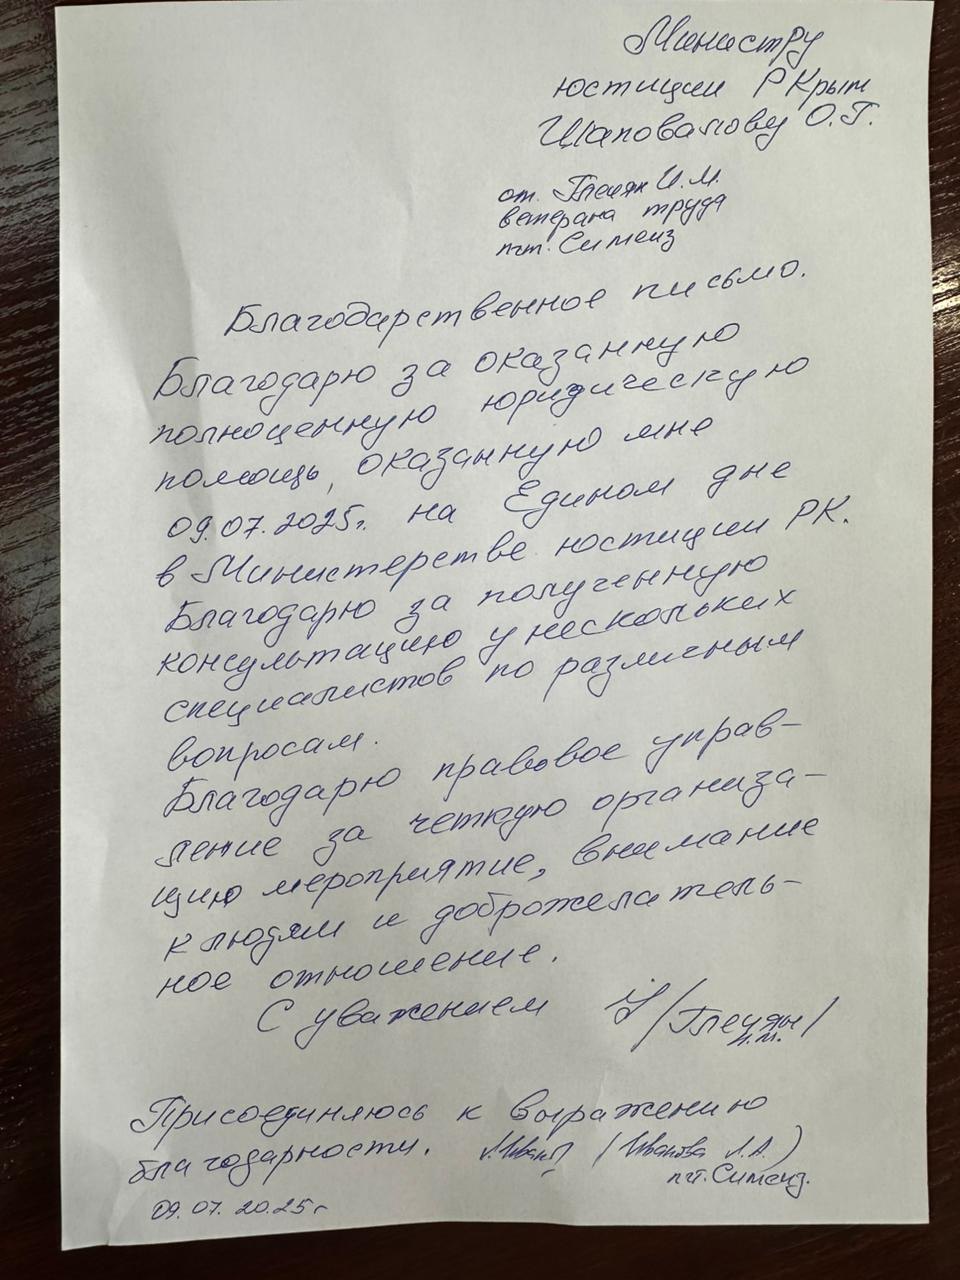 Министру
юстиции РКрым
Шаповалову О.Г.
от И.М.
ветерана труда
пгт. Симеиз
Благодарственное письмо.
Благодарю за оказанную
полноценную юридическую
помощь, оказанную мне
09.07.2025г. на Едином дне
в Министерстве юстиции РК.
Благодарю за полученную
консультацию у нескольких
специалистов по различным
вопросам.
Благодарю правовое управ-
ление за четкую организа-
цию мероприятие, внимание
к людям и доброжелатель-
ное отношение.
С уважением
И.М.
Присоединяюсь к выражению
благодарности. (Иванова Л.А.)
пгт. Симеиз.
09.07.2025г